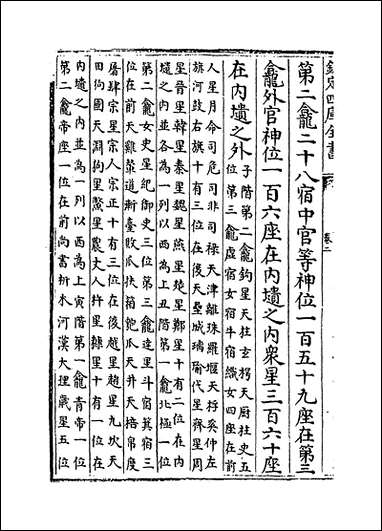 欽定四庫全書
卷二
第二龕二十八宿中官等神位一百五十九座在第三
龕外官神位一百六座在内壝之内衆星三百六十座
在内壝之外子階第二龕鈎星天柱玄枵天厨柱史五
位第三龕虛宿女宿牛宿織女四座在前
人星月命司危司非司禄天津離珠羅堰天桴奚仲左
旗河鼓右旗十有三位在後天壘城璃瑜代星齊星周
星晉星韓星秦星魏星燕星楚星鄭星十有二位在内
壝之内並各為一列以西為上丑階第一龕北極一位
第二龕女史星紀御史三位第三龕逹星斗宿箕宿三
位在前天雞輦道漸臺敗瓜扶筐匏瓜天弁天棓帛度
屠肆宗星宗人宗正十有三位在後越星趙星九坎天
田狗國天淵狗星鼈星農丈人杵星糠星十有一位在
内壝之内並為一列以西為上寅階第一龕青帝一位
第二龕帝座一位在前尚書析木河漢大理歳星五位